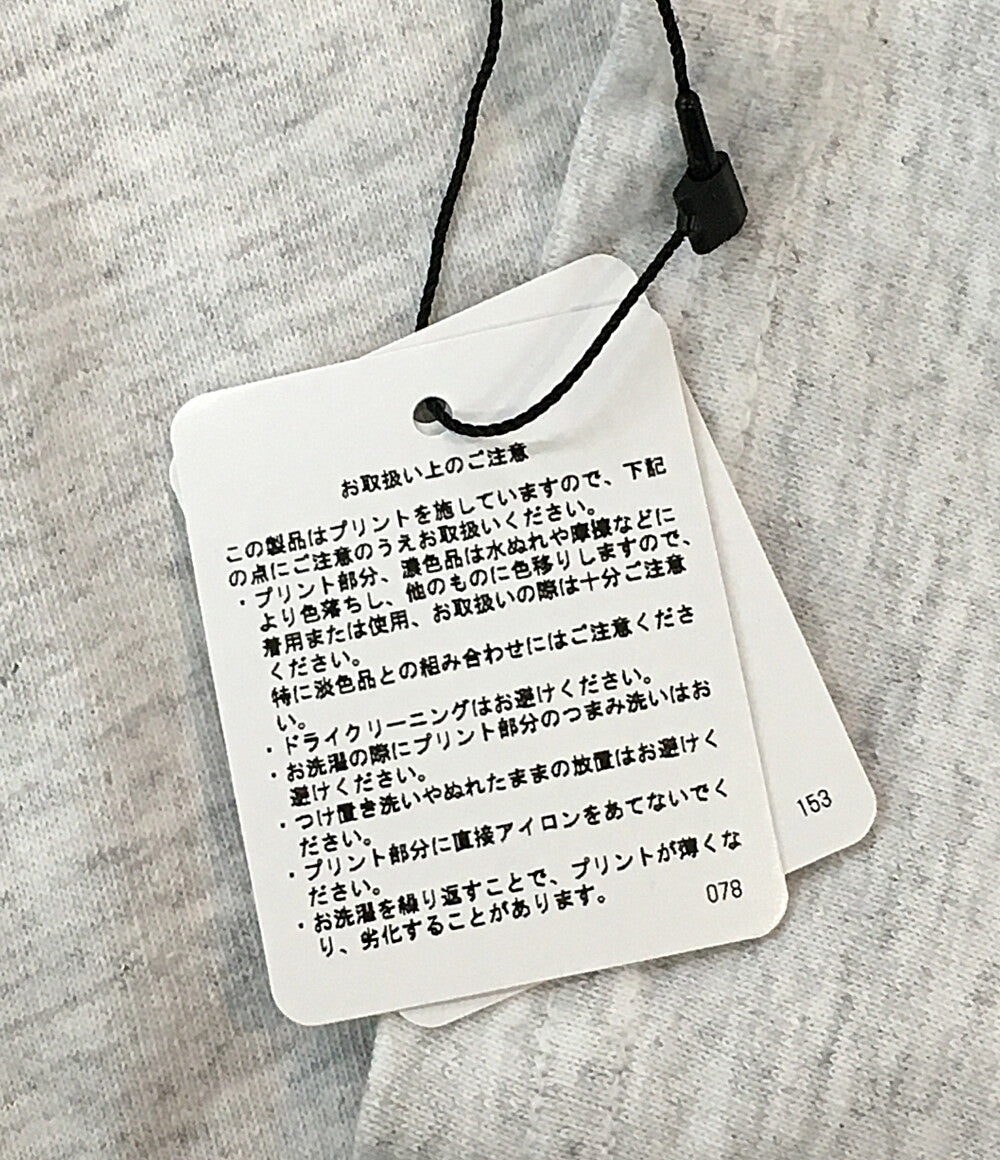 お取扱い上のご注意
この製品はプリントを施していますので、下記
の点にご注意のうえお取扱いください。
・プリント部分、濃色品は水ぬれや摩擦などに
より色落ちし、他のものに色移りしますので、
着用または使用、お取扱いの際は十分ご注意
ください。
特に淡色品との組み合わせにはご注意くださ
い。
・ドライクリーニングはお避けください。
・お洗濯の際にプリント部分のつまみ洗いはお
避けください。
・つけ置き洗いやぬれたままの放置はお避けく
ださい。
・プリント部分に直接アイロンをあてないでく
ださい。
・お洗濯を繰り返すことで、プリントが薄くな
り、劣化することがあります。
078
153